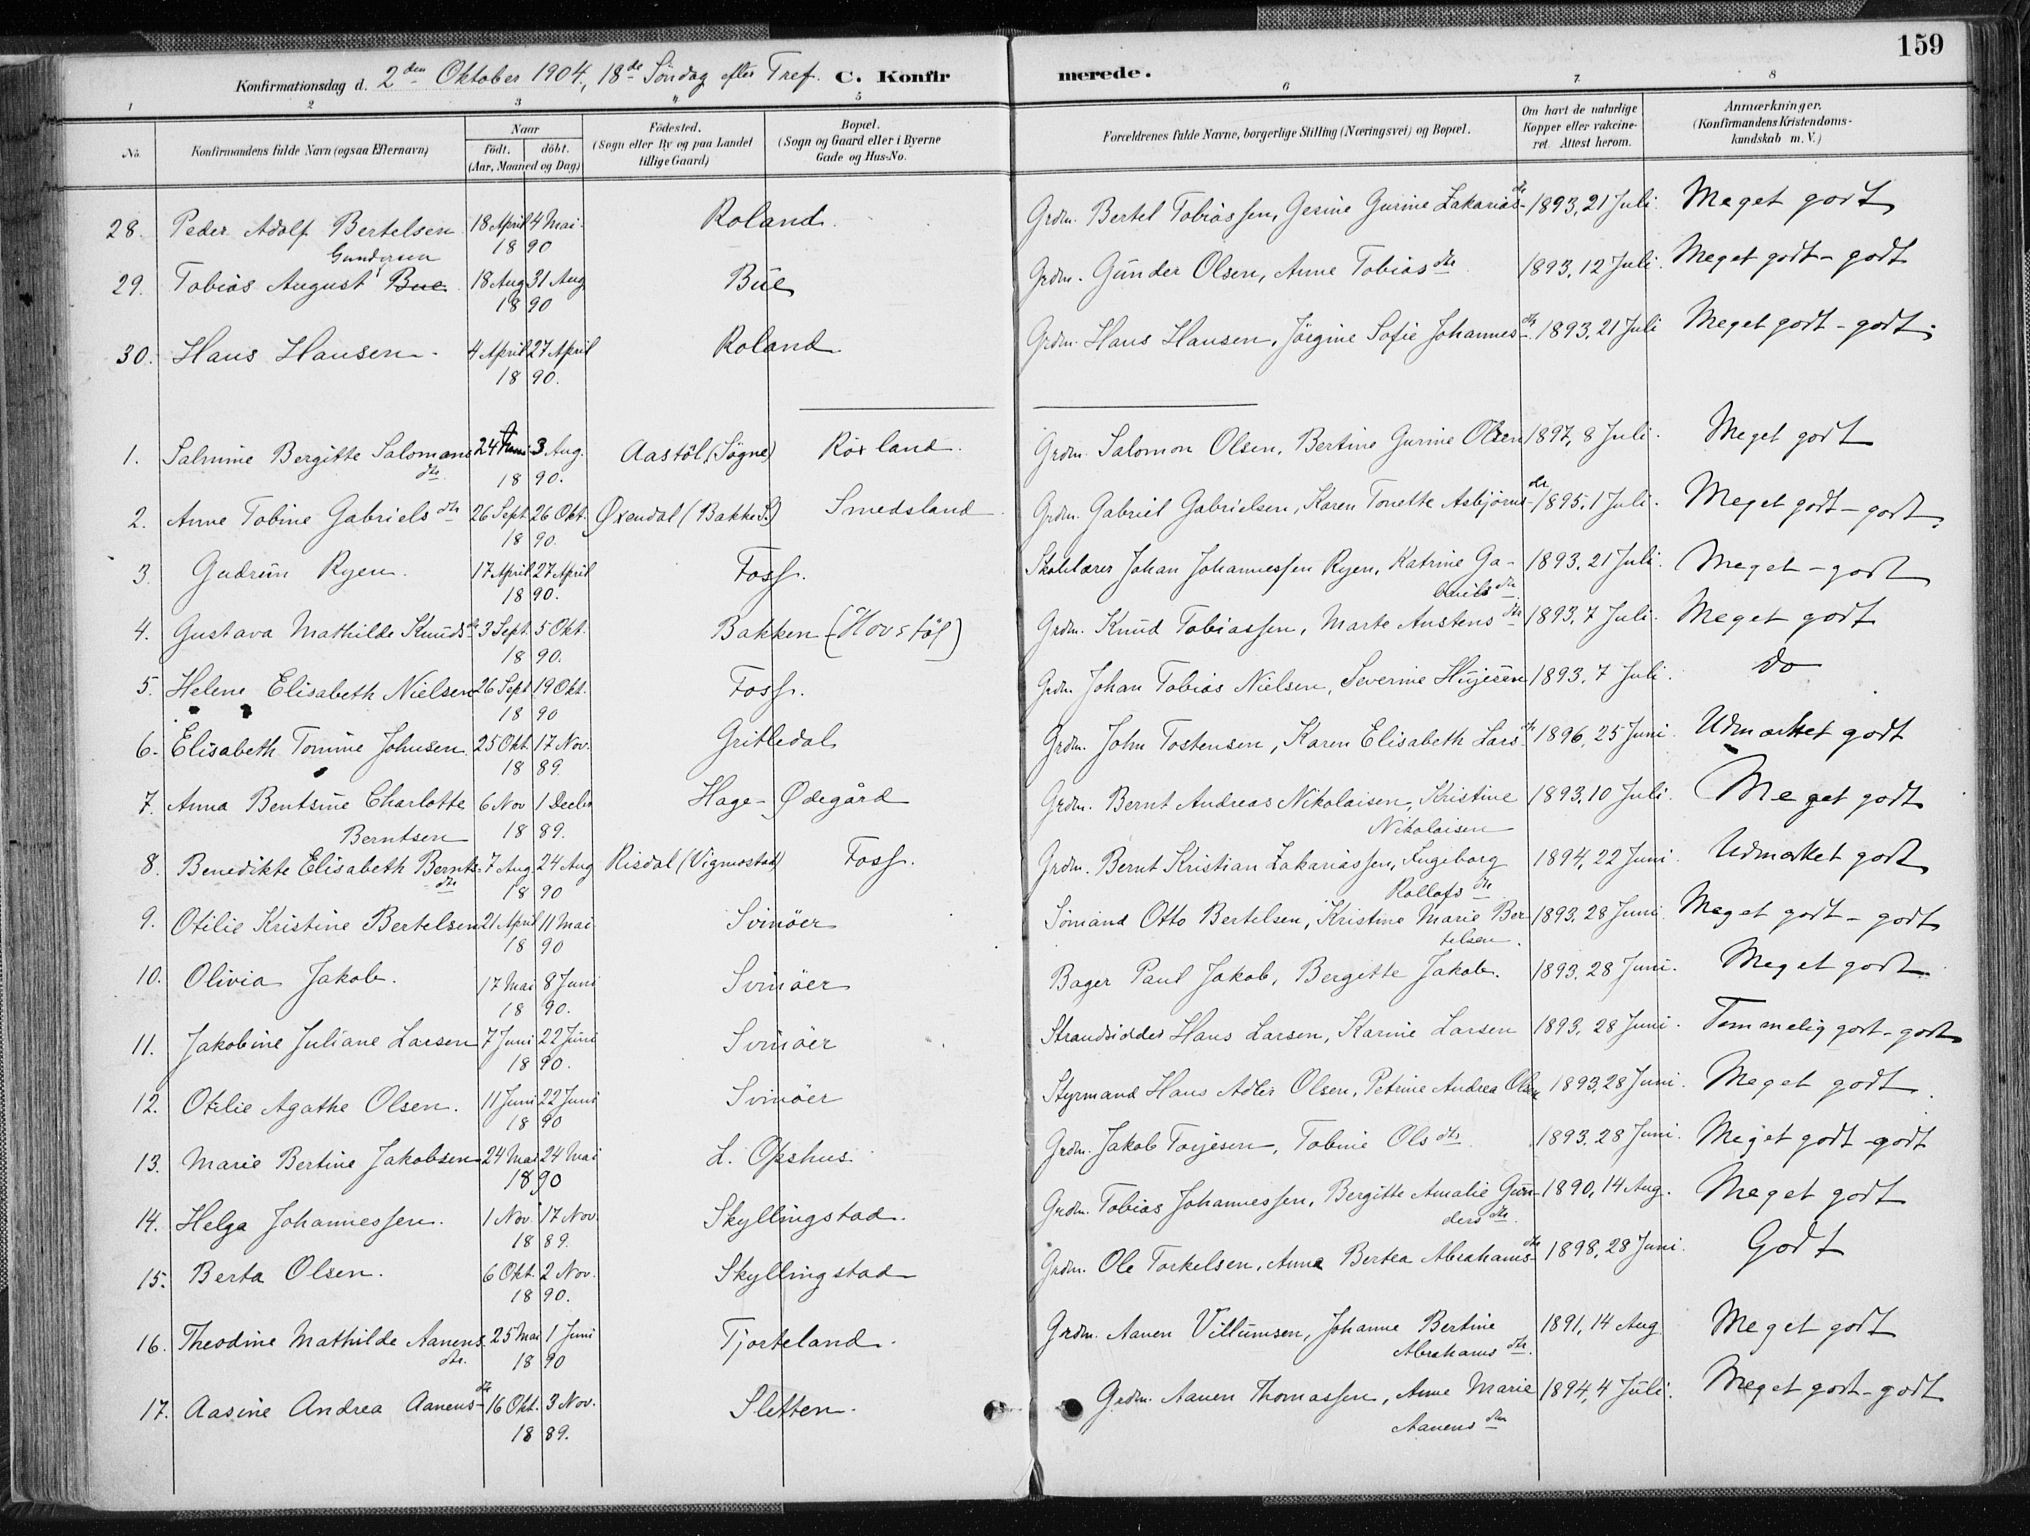 159
Konfirmationsdag d. 2den Oktober 1904, 18de Søndag efter Tref. C. Konfirmerede.
1 2 3 4 5 6 7 8
No. Konfirmandens fulde Navn (ogsaa Efternavn) Naar født. døbt. (Aar, Maaned og Dag) Fødested. (Sogn eller By og paa Landet tillige Gaard) Bopæl. (Sogn og Gaard eller i Byerne Gade og Hus-No. Forældrenes fulde Navne, borgerlige Stilling (Næringsvei) og Bopæl. Om havt de naturlige Kopper eller vakcineret. Attest herom. Anmærkninger. (Konfirmandens Kristendomskundskab m. V.)
28. Peder Adolf Bertelsen 18 April 4 Mai 1890 Roland Grdm. Bertel Tobiassen, Gesine Gurine Zakariasdr 1893, 21 Juli. Meget godt
Gundersen
29. Tobias August Bue 18 Aug 31 Aug 1890 Bue Grdm. Gunder Olsen, Anne Tobiasdtr 1893, 12 Juli. Meget godt - godt
30. Hans Hansen 4 April 27 April 1890. Roland Grdm. Hans Hansen, Jørgine Sofie Johannesdtr. 1893, 21 Juli Meget godt - godt.
1. Salmine Bergitte Salomonsdtr. 24 Juni 3 Aug. 1890. Aastøl (Søgne) Røxland. Grdm. Salomon Olsen, Bertine Gurine Olsen 1897, 8 Juli. Meget godt
2. Anne Tobine Gabrielsdtr 26 Sept 26 Okt. 1890. Øxendal (Bakke S.) Smedsland Grdm. Gabriel Gabrielsen, Karen Tonette Asbjørnsdr 1895, 1 Juli. Meget godt - godt.
3. Gudrun Ryen. 17 April 27 April 1890. Foss. Skolelærer Johan Johannessen Ryen, Katrine Gabrielsdtr. 1893, 21 Juli. Meget - godt
4. Gustava Mathilde Knudsdr 3 Sept. 5 Okt. 1890. Bakken (Hovstøl) Grdm. Knud Tobiassen, Marte Austensdtr 1893, 7 Juli. Meget godt
5. Helene Elisabeth Nielsen 26 Sept 19 Okt. 1890 Foss. Grdm. Johan Tobias Nielsen, Severine 1893, 7 Juli. do
6. Elisabeth Tomine Johnsen 25 Okt. 17 Nov. 1889. Gritledal Grdm. John Tostensen, Karen Elisabeth Larsdtr 1896, 25 Juni Udmærket godt
7. Anna Bentsine Charlotte Berntsen 6 Nov 1 Decbr 1889. Hage-Ødegård Grdm. Bernt Andreas Nikolaisen, Kristine Nikolaisen 1893, 10 Juli. Meget godt
8. Benedikte Elisabeth Berntsdtr 7 Aug. 24 Aug 1890 Risdal (Vigmostad) Foss. Grdm. Bernt Kristian Zakariassen, Ingeborg Rollofsdtr 1894, 22 Juni. Udmærket godt
9. Otilie Kristine Bertelsen 21 April 11 Mai 1890 Svinøer Sømand Otto Bertelsen, Kristine Marie Bertelsen. 1893, 28 Juni. Meget godt - godt
10. Olivia Jakob. 17 Mai 8 Juni 1890. Svinøer Bager Paul Jakob, Bergitte Jakob. 1893, 28 Juni. Meget godt
11. Jakobine Juliane Larsen 7 Juni 22 Juni 1890. Svinøer Strandsidder Hans Larsen, Karine Larsen 1893, 28 Juni. Temmelig godt - godt
12. Otilie Agathe Olsen. 11 Juni 22 Juni 1890 Svinøer Styrmand Hans Adler Olsen, Petrine Andrea Olsen 1893, 28 Juni. Meget godt.
13. Marie Bertine Jakobsen 24 Mai 24 Mai 1890 L. Opshus Grdm. Jakob Torjesen, Tobine Olsdtr 1893, 28 Juni. Meget godt - godt
14. Helga Johannessen. 1 Nov. 17 Nov. 1889. Skyllingstad. Grdm. Tobias Johannessen, Bergitte Amalie Gundersdtr. 1890, 14 Aug. Meget godt
15. Berta Olsen. 6 Okt. 2 Nov. 1890. Skyllingstad Grdm. Ole Torkelsen, Anne Bertea Abrahamsdtr 1898, 28 Juni. Godt
16. Theodine Mathilde Aanensdtr. 25 Mai 1 Juni 1890 Tjorteland. Grdm. Aanen Villumsen, Johanne Bertine Abrahamsdtr. 1891, 14 Aug Meget godt
17. Aasine Andrea Aanensdtr 16 Okt. 3 Nov. 1889. Sletten. Grdm. Aanen Thomassen, Anne Marie Aanensdtr 1894, 4 Juli. Meget godt - godt